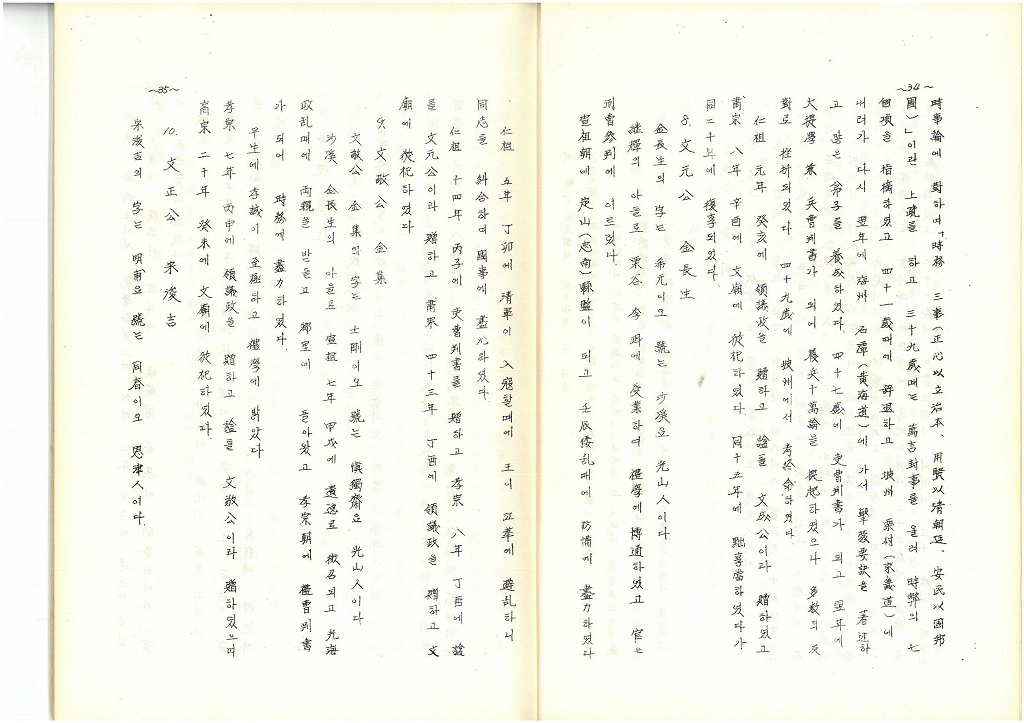 ~34~
時事論에 對하여「時務 三事(正心以立治本、用賢以淸朝廷、安民以固邦
國)」이란 上疏를 하고 三十九歲때는 萬言封事를 올려 時弊의 七
個項을 指摘하였고 四十一歲때에 辭退하고 坡州 栗谷(京畿道)에
내려가 다시 翌年에 海州 石潭(黃海道)에 가서 擊蒙要訣을 著述하
고 많은 弟子를 養成하였다. 四十七歲에 吏曹判書가 되고 翌年에
大提學 兼 兵曹判書가 되어 養兵十萬論을 提起하였으나 多數의 反
對로 挫折되었다. 四十九歲에 坡州에서 考終命하였다.
仁祖 元年 癸亥에 領議政을 贈하고 諡를 文成公이라 贈하였고
肅宗 八年 辛酉에 文廟에 從祀하였다. 同十五年에 黜享當하였다가
同二十年에 復享되었다.
8. 文元公 金長生
金長生의 字는 希元이오 號는 沙溪오 光山人이다.
繼輝의 아들로 栗谷 李珥에 受業하여 禮學에 博通하였고 官은
刑曹參判에 이르렀다.
宣祖朝에 定山(忠南)縣監이 되고 壬辰倭乱때에 防備에 盡力하였다
~35~
仁祖 五年 丁卯에 淸軍이 入寇할때에 王이 江華에 避乱하니
同志를 糾合하여 國事에 盡力하였다.
仁祖 十四年 丙子에 吏曹判書를 贈하고 孝宗 八年 丁酉에 諡
를 文元公이라 贈하고 肅宗 四十三年 丁酉에 領議政을 贈하고 文
廟에 從祀하였다
9. 文敬公 金集
文敬公 金集의 字는 士剛이오 號는 愼獨齋요 光山人이다
沙溪 金長生의 아들로 宣祖 七年 甲戌에 遺逸로 徵召되고 光海
政乱때에 両親을 받들고 鄕里에 돌아왔고 孝宗朝에 吏曹判書
가 되어 時務에 盡力하였다.
平生에 孝誠이 至極하고 禮學에 밝았다
孝宗 七年 丙申에 領議政을 贈하고 諡를 文敬公이라 贈하였으며
高宗 二十年 癸未에 文廟에 從祀하였다.
10. 文正公 宋浚吉
宋浚吉의 字는 明甫요 號는 同春이오 恩津人이다.